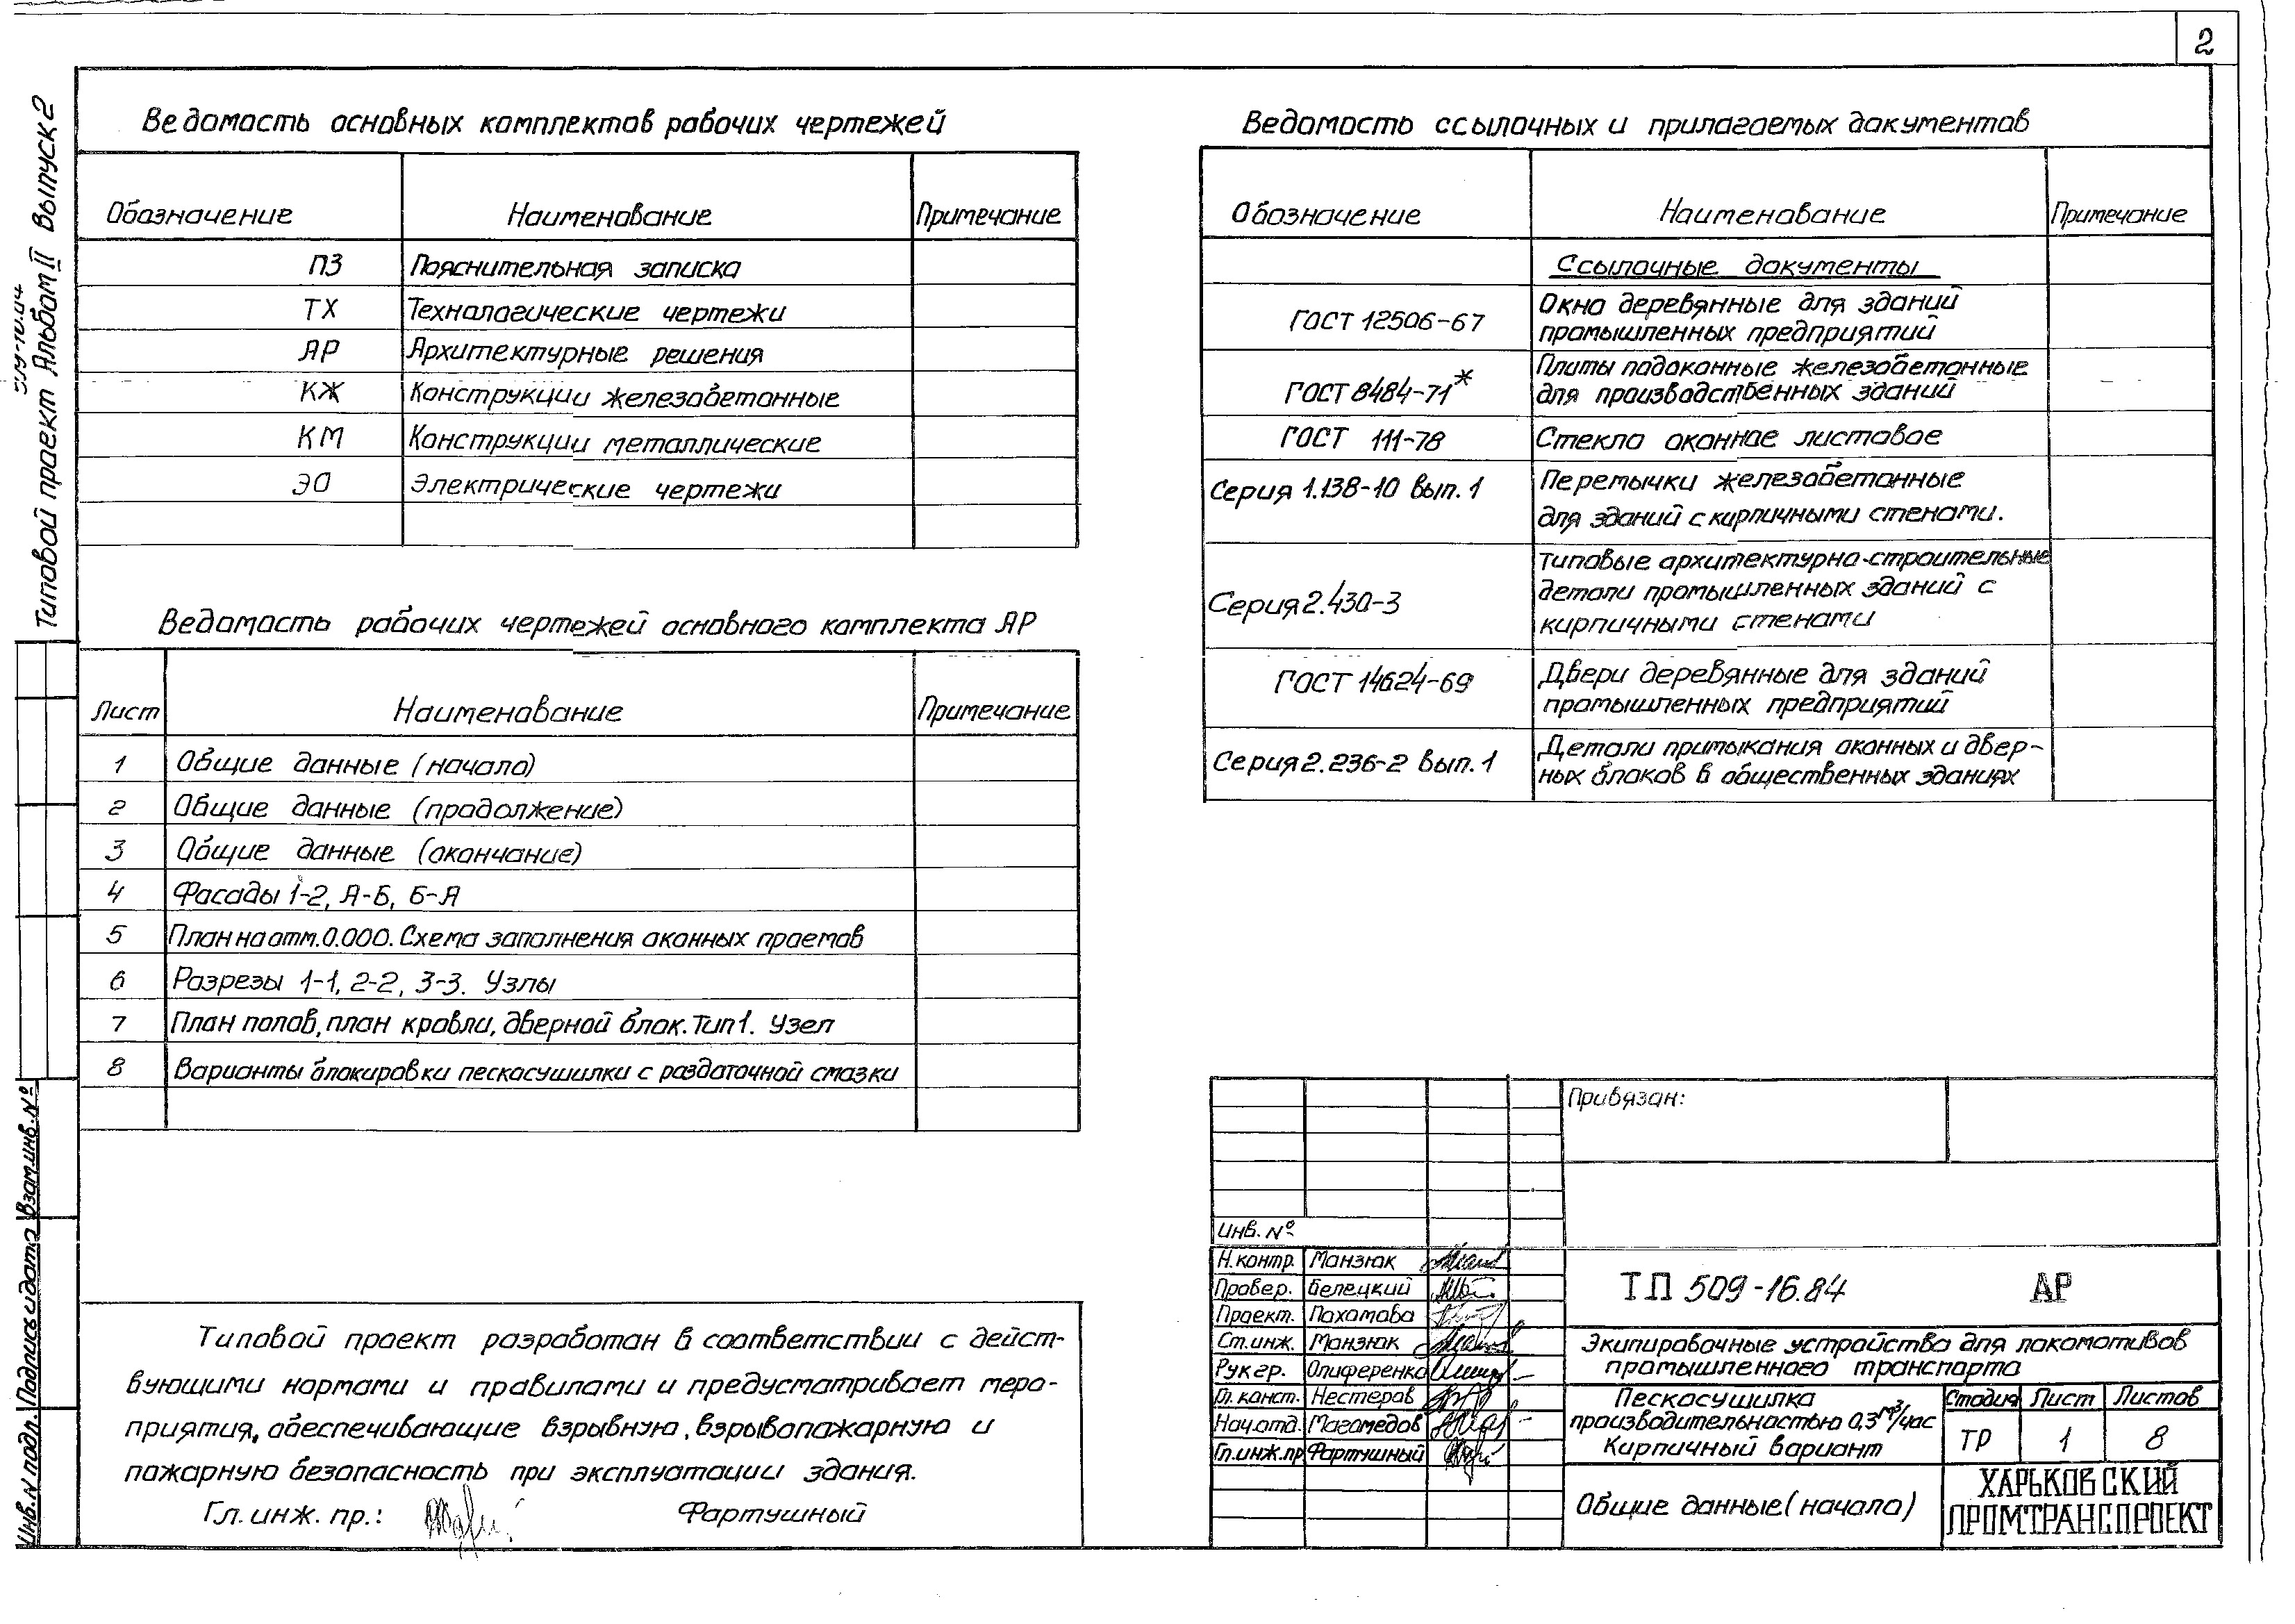 2
Типовой проект Альбом II Выпуск 2
Ведомость основных комплектов рабочих чертежей
Обозначение Наименование Примечание
ПЗ Пояснительная записка
ТХ Технологические чертежи
АР Архитектурные решения
КЖ Конструкции железобетонные
КМ Конструкции металлические
ЭО Электрические чертежи
Ведомость рабочих чертежей основного комплекта АР
Лист Наименование Примечание
1 Общие данные (начало)
2 Общие данные (продолжение)
3 Общие данные (окончание)
4 Фасады 1-2, А-Б, Б-А
5 План на отм. 0.000. Схема заполнения оконных проемов
6 Разрезы 1-1, 2-2, 3-3. Узлы
7 План полов, план кровли, дверной блок. Тип 1. Узел
8 Варианты блокировки пескосушилки с раздаточной смазки
Типовой проект разработан в соответствии с дейст-
вующими нормами и правилами и предусматривает меро-
приятия, обеспечивающие взрывную, взрывопожарную и
пожарную безопасность при эксплуатации здания.
Гл. инж. пр.: Фартушный
Ведомость ссылочных и прилагаемых документов
Обозначение Наименование Примечание
Ссылочные документы
ГОСТ 12506-67 Окна деревянные для зданий
промышленных предприятий
ГОСТ 8484-71* Плиты подоконные железобетонные
для производственных зданий
ГОСТ 111-78 Стекло оконное листовое
Серия 1.138-10 Вып. 1 Перемычки железобетонные
для зданий с кирпичными стенами.
Серия 2.430-3 Типовые архитектурно-строительные
детали промышленных зданий с
кирпичными стенами
ГОСТ 14624-69 Двери деревянные для зданий
промышленных предприятий
Серия 2.236-2 Вып. 1 Детали примыкания оконных и двер-
ных блоков в общественных зданиях
Привязан:
Инв. №
Н. контр. Манзюк
Провер. Белецкий
Проект. Пахомова
Ст. инж. Манзюк
Рук гр. Олиференко
Гл. конст. Нестеров
Нач. отд. Магомедов
Гл. инж. пр Фартушный
ТП 509-16.84 АР
Экипировочные устройства для локомотивов
промышленного транспорта
Пескосушилка
производительностью 0,3 м³/час
Кирпичный вариант
Стадия Лист Листов
ТР 1 8
Общие данные (начало)
ХАРЬКОВСКИЙ
ПРОМТРАНСПРОЕКТ
Инв. N подл. Подпись и дата Взам. инв. №